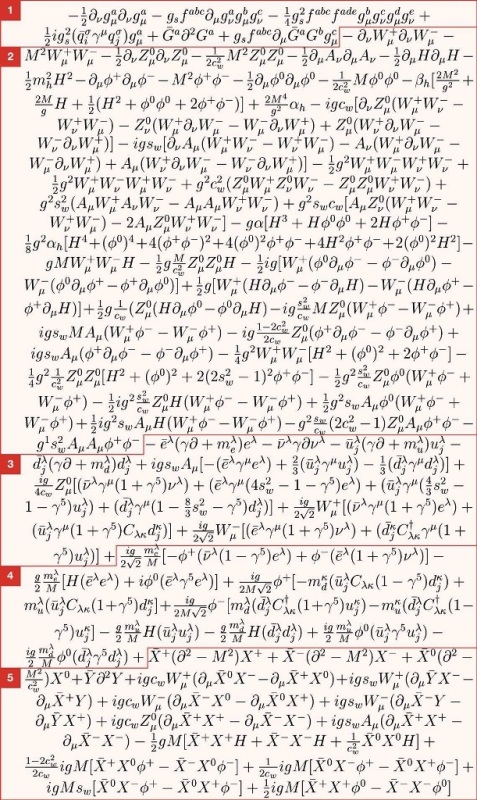 1 −½∂_νg^a_μ∂_νg^a_μ − g_s f^{abc}∂_μg^a_νg^b_μg^c_ν − ¼g²_s f^{abc}f^{ade}g^b_μg^c_νg^d_μg^e_ν +
½ig²_s(q̄^σ_iγ^μq^σ_j)g^a_μ + Ḡ^a∂²G^a + g_s f^{abc}∂_μḠ^aG^bg^c_μ − ∂_νW^+_μ∂_νW^−_μ −
2 M²W^+_μW^−_μ − ½∂_νZ^0_μ∂_νZ^0_μ − \frac{1}{2c²_w}M²Z^0_μZ^0_μ − ½∂_μA_ν∂_μA_ν − ½∂_μH∂_μH −
½m²_hH² − ∂_μφ^+∂_μφ^− − M²φ^+φ^− − ½∂_μφ^0∂_μφ^0 − \frac{1}{2c²_w}Mφ^0φ^0 − β_h[\frac{2M²}{g²} +
\frac{2M}{g}H + ½(H² + φ^0φ^0 + 2φ^+φ^−)] + \frac{2M^4}{g²}α_h − igc_w[∂_νZ^0_μ(W^+_μW^−_ν −
W^+_νW^−_μ) − Z^0_ν(W^+_μ∂_νW^−_μ − W^−_μ∂_νW^+_μ) + Z^0_μ(W^+_ν∂_νW^−_μ −
W^−_ν∂_νW^+_μ)] − igs_w[∂_νA_μ(W^+_μW^−_ν − W^+_νW^−_μ) − A_ν(W^+_μ∂_νW^−_μ −
W^−_μ∂_νW^+_μ) + A_μ(W^+_ν∂_νW^−_μ − W^−_ν∂_νW^+_μ)] − ½g²W^+_μW^−_μW^+_νW^−_ν +
½g²W^+_μW^−_νW^+_μW^−_ν + g²c²_w(Z^0_μW^+_μZ^0_νW^−_ν − Z^0_μZ^0_μW^+_νW^−_ν) +
g²s²_w(A_μW^+_μA_νW^−_ν − A_μA_μW^+_νW^−_ν) + g²s_wc_w[A_μZ^0_ν(W^+_μW^−_ν −
W^+_νW^−_μ) − 2A_μZ^0_μW^+_νW^−_ν] − gα[H³ + Hφ^0φ^0 + 2Hφ^+φ^−] −
⅛g²α_h[H^4+(φ^0)^4+4(φ^+φ^−)²+4(φ^0)²φ^+φ^−+4H²φ^+φ^−+2(φ^0)²H²]−
gMW^+_μW^−_μH − ½g\frac{M}{c²_w}Z^0_μZ^0_μH − ½ig[W^+_μ(φ^0∂_μφ^− − φ^−∂_μφ^0) −
W^−_μ(φ^0∂_μφ^+ − φ^+∂_μφ^0)] + ½g[W^+_μ(H∂_μφ^− − φ^−∂_μH) − W^−_μ(H∂_μφ^+ −
φ^+∂_μH)] + ½g\frac{1}{c_w}(Z^0_μ(H∂_μφ^0−φ^0∂_μH) − ig\frac{s²_w}{c_w}MZ^0_μ(W^+_μφ^−−W^−_μφ^+) +
igs_wMA_μ(W^+_μφ^− − W^−_μφ^+) − ig\frac{1−2c²_w}{2c_w}Z^0_μ(φ^+∂_μφ^− − φ^−∂_μφ^+) +
igs_wA_μ(φ^+∂_μφ^− − φ^−∂_μφ^+) − ¼g²W^+_μW^−_μ[H² + (φ^0)² + 2φ^+φ^−] −
¼g²\frac{1}{c²_w}Z^0_μZ^0_μ[H² + (φ^0)² + 2(2s²_w − 1)²φ^+φ^−] − ½g²\frac{s²_w}{c_w}Z^0_μφ^0(W^+_μφ^− +
W^−_μφ^+) − ½ig²\frac{s²_w}{c_w}Z^0_μH(W^+_μφ^− − W^−_μφ^+) + ½g²s_wA_μφ^0(W^+_μφ^− +
W^−_μφ^+) + ½ig²s_wA_μH(W^+_μφ^− − W^−_μφ^+) − g²\frac{s_w}{c_w}(2c²_w − 1)Z^0_μA_μφ^+φ^− −
g^1s²_wA_μA_μφ^+φ^− − ē^λ(γ∂ + m^λ_e)e^λ − ν̄^λγ∂ν^λ − ū^λ_j(γ∂ + m^λ_u)u^λ_j −
3 d̄^λ_j(γ∂ + m^λ_d)d^λ_j + igs_wA_μ[−(ē^λγ^μe^λ) + ⅔(ū^λ_jγ^μu^λ_j) − ⅓(d̄^λ_jγ^μd^λ_j)] +
\frac{ig}{4c_w}Z^0_μ[(ν̄^λγ^μ(1 + γ^5)ν^λ) + (ē^λγ^μ(4s²_w − 1 − γ^5)e^λ) + (ū^λ_jγ^μ(\frac{4}{3}s²_w −
1 − γ^5)u^λ_j) + (d̄^λ_jγ^μ(1 − \frac{8}{3}s²_w − γ^5)d^λ_j)] + \frac{ig}{2√2}W^+_μ[(ν̄^λγ^μ(1 + γ^5)e^λ) +
(ū^λ_jγ^μ(1 + γ^5)C_{λκ}d^κ_j)] + \frac{ig}{2√2}W^−_μ[(ē^λγ^μ(1 + γ^5)ν^λ) + (d̄^κ_jC^†_{λκ}γ^μ(1 +
γ^5)u^λ_j)] + \frac{ig}{2√2}\frac{m^λ_e}{M}[−φ^+(ν̄^λ(1 − γ^5)e^λ) + φ^−(ē^λ(1 + γ^5)ν^λ)] −
4 \frac{g}{2}\frac{m^λ_e}{M}[H(ē^λe^λ) + iφ^0(ē^λγ^5e^λ)] + \frac{ig}{2M√2}φ^+[−m^κ_d(ū^λ_jC_{λκ}(1 − γ^5)d^κ_j) +
m^λ_u(ū^λ_jC_{λκ}(1 + γ^5)d^κ_j] + \frac{ig}{2M√2}φ^−[m^λ_d(d̄^λ_jC^†_{λκ}(1 + γ^5)u^κ_j) − m^κ_u(d̄^λ_jC^†_{λκ}(1−
γ^5)u^κ_j] − \frac{g}{2}\frac{m^λ_u}{M}H(ū^λ_ju^λ_j) − \frac{g}{2}\frac{m^λ_d}{M}H(d̄^λ_jd^λ_j) + \frac{ig}{2}\frac{m^λ_u}{M}φ^0(ū^λ_jγ^5u^λ_j) −
\frac{ig}{2}\frac{m^λ_d}{M}φ^0(d̄^λ_jγ^5d^λ_j) + X̄^+(∂² − M²)X^+ + X̄^−(∂² − M²)X^− + X̄^0(∂² −
5 \frac{M²}{c²_w})X^0 + Ȳ∂²Y + igc_wW^+_μ(∂_μX̄^0X^− − ∂_μX̄^+X^0) + igs_wW^+_μ(∂_μȲX^− −
∂_μX̄^+Y) + igc_wW^−_μ(∂_μX̄^−X^0 − ∂_μX̄^0X^+) + igs_wW^−_μ(∂_μX̄^−Y −
∂_μȲX^+) + igc_wZ^0_μ(∂_μX̄^+X^+ − ∂_μX̄^−X^−) + igs_wA_μ(∂_μX̄^+X^+ −
∂_μX̄^−X^−) − ½gM[X̄^+X^+H + X̄^−X^−H + \frac{1}{c²_w}X̄^0X^0H] +
\frac{1−2c²_w}{2c_w}igM[X̄^+X^0φ^+ − X̄^−X^0φ^−] + \frac{1}{2c_w}igM[X̄^0X^−φ^+ − X̄^0X^+φ^−] +
igMs_w[X̄^0X^−φ^+ − X̄^0X^+φ^−] + ½igM[X̄^+X^+φ^0 − X̄^−X^−φ^0]